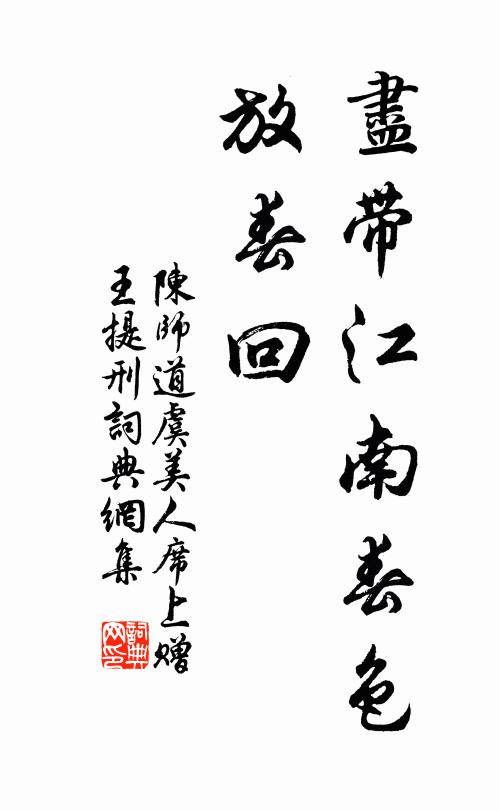 盡帶江南春色
放春回
陳師道虞美人席上贈
王提刑詞典網集
詞典網印